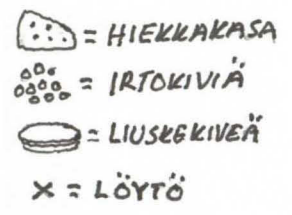 = HIEKKAKASA
= IRTOKIVIÄ
= LIUSKEKIVEÄ
X = LÖYTÖ